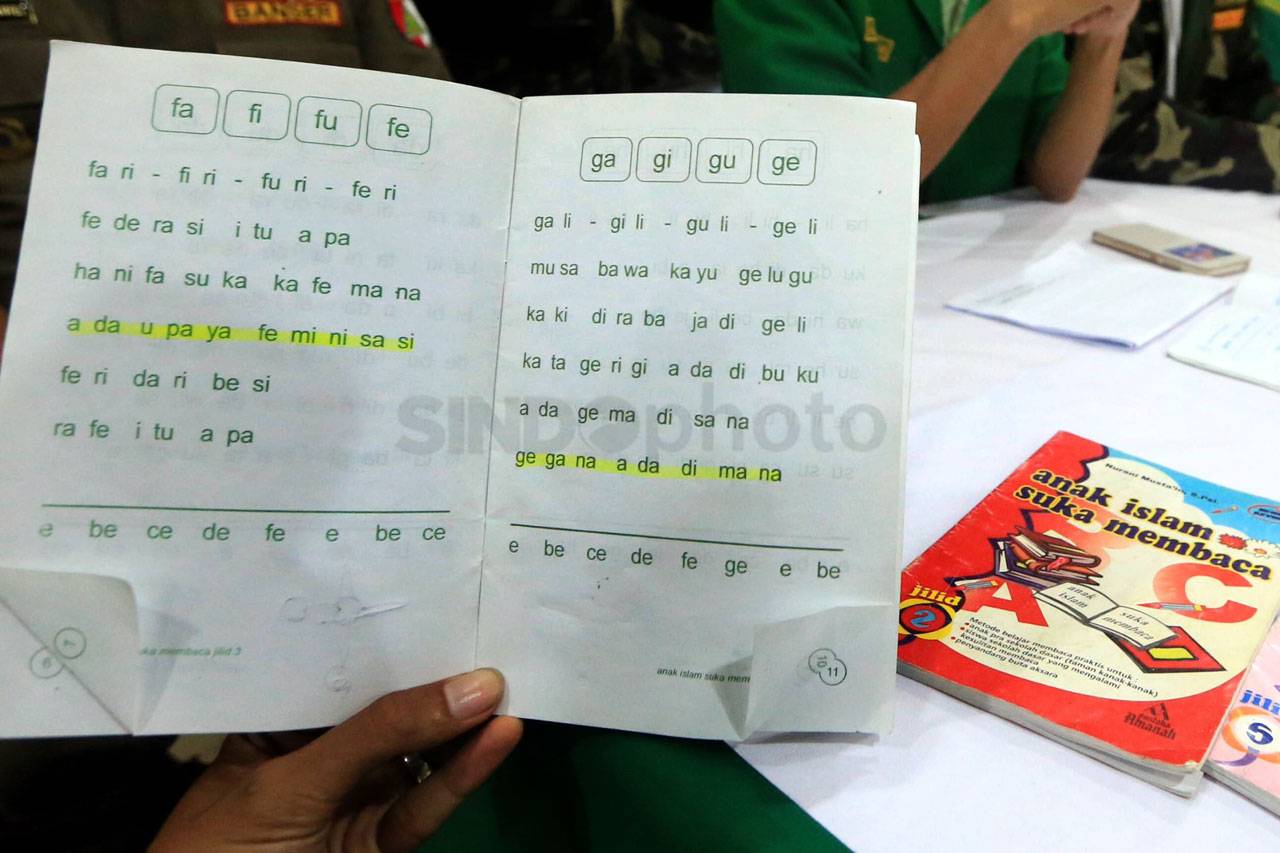 BANSER
fa fi fu fe
fa ri - fi ri - fu ri - fe ri
fe de ra si i tu a pa
ha ni fa su ka ka fe ma na
a da u pa ya fe mi ni sa si
fe ri da ri be si
ra fe i tu a pa
e be ce de fe e be ce
6
ka membaca jilid 3
ga gi gu ge
ga li - gi li - gu li - ge li
mu sa ba wa ka yu ge lu gu
ka ki di ra ba ja di ge li
ka ta ge ri gi a da di bu ku
a da ge ma di sa na
ge ga na a da di ma na
e be ce de fe ge e be
anak islam suka mem
11
SINDOphoto
Nurani Musta'in, S.Psi.
anak islam
suka membaca
A C
anak islam
suka membaca
jilid
2
Metode belajar membaca praktis untuk :
• anak pra sekolah dasar (taman kanak-kanak)
• siswa sekolah dasar yang mengalami
kesulitan membaca
• penyandang buta aksara
Pustaka
Amanah
jili
5